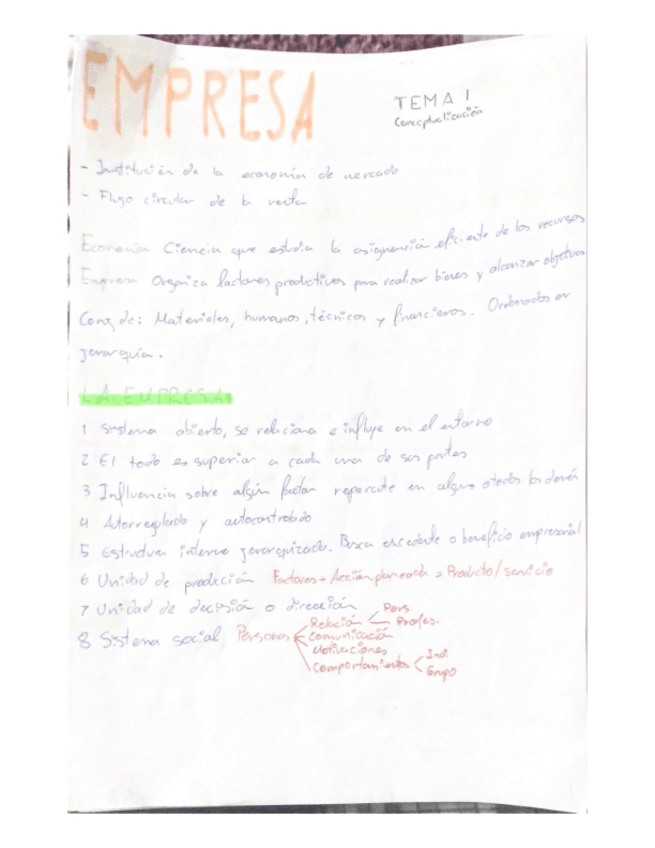 EMPRESA
TEMA 1
Conceptualización
- Institución de la economía de mercado
- Flujo circular de la renta
Economía Ciencia que estudia la asignación eficiente de los recursos
Empresa Organiza factores productivos para realizar bienes y alcanzar objetivos
de: Materiales, humanos, técnicos y financieros. Ordenados en
jerarquía.
LA EMPRESA
1 Sistema abierto, se relaciona e influye en el entorno
2 El todo es superior a cada una de sus partes
3 Influencia sobre algún factor repercute en alguno o todos los demás
4 Autorregulado y autocontrolado
5 Estructura interna jerarquizada. Busca excedente o beneficio empresarial
6 Unidad de producción Factores + Acción planeada = Producto/servicio
7 Unidad de decisión o dirección
8 Sistema social Personas
Relación < Pers.
Profes.
Comunicación
Motivaciones
Comportamientos < Ind.
Grupo